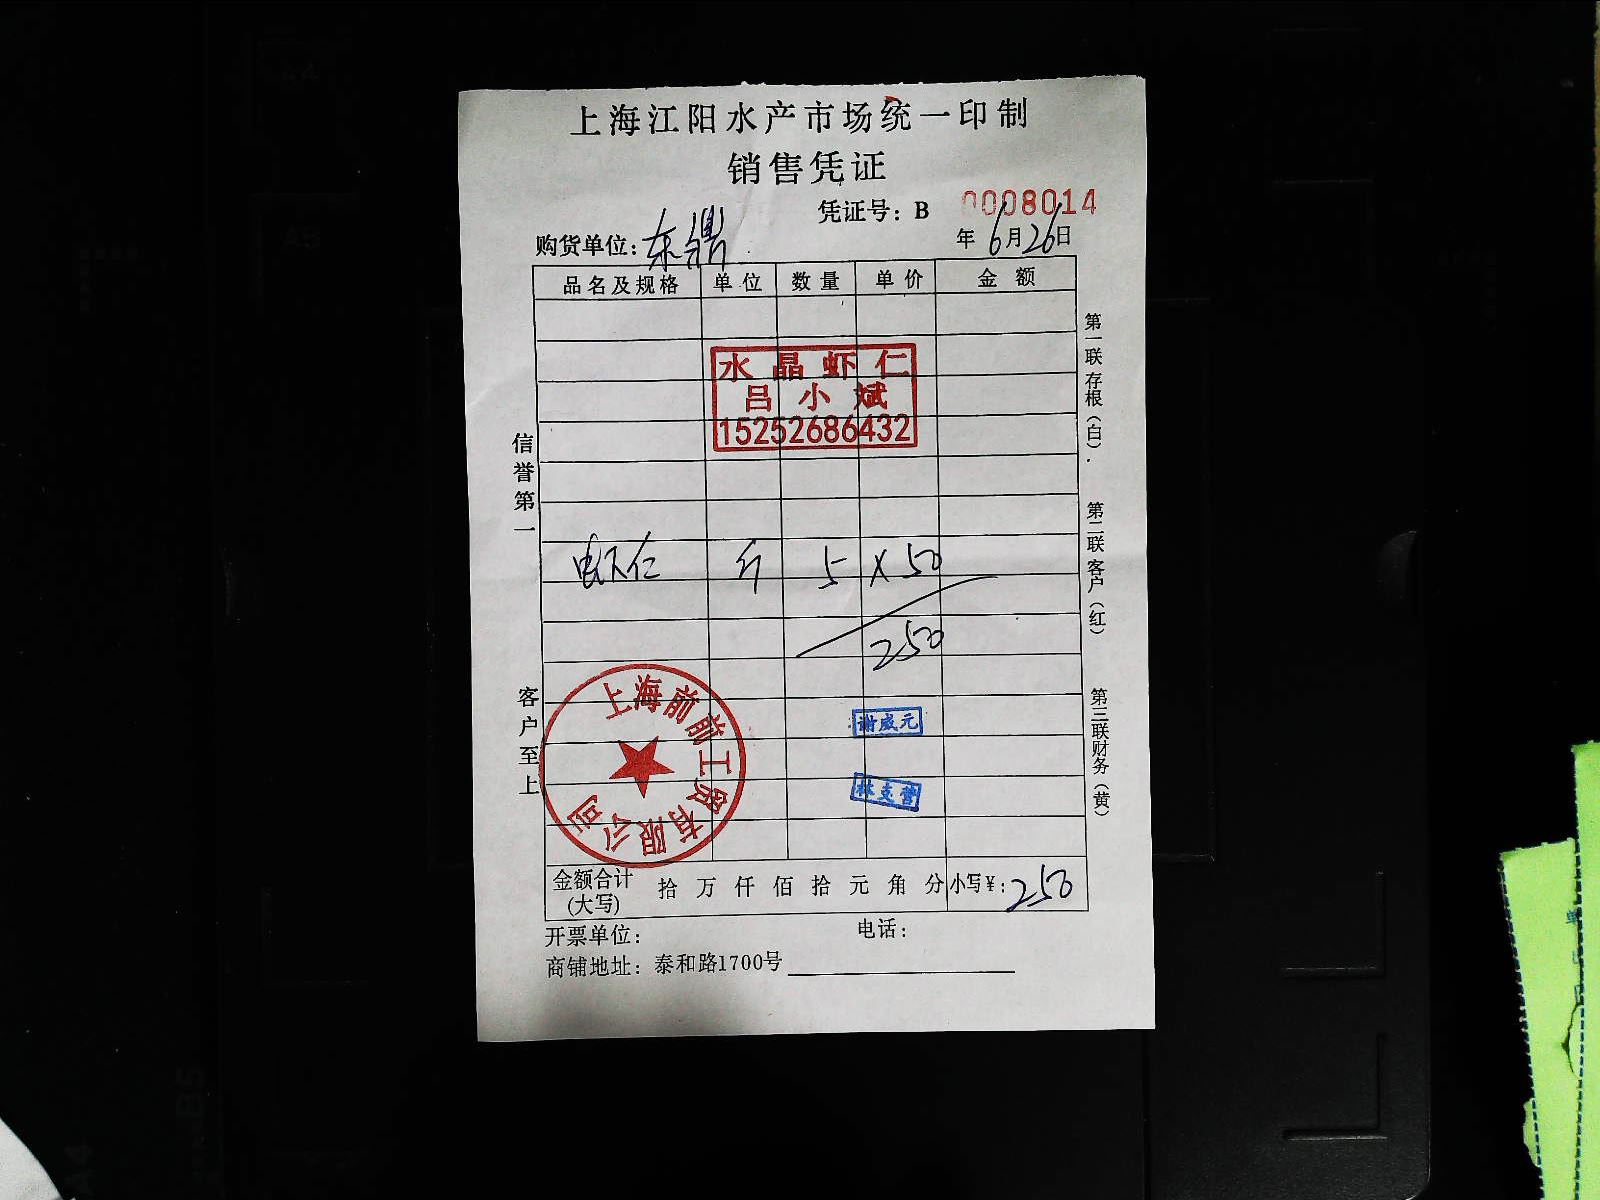 上海江阳水产市场统一印制
销售凭证
凭证号：B 0008014
购货单位：东鼎
年 6月26日
品名及规格 单位 数量 单价 金额
水晶虾仁
吕小斌
15252686432
虾仁 斤 5 × 50
250
谢盛元
林支营
上海前前工贸有限公司
金额合计(大写) 拾 万 仟 佰 拾 元 角 分 小写¥：250
开票单位： 电话：
商铺地址：泰和路1700号
信誉第一
客户至上
第一联存根（白）．
第二联客户（红）
第三联财务（黄）
AB
B5
A4
单